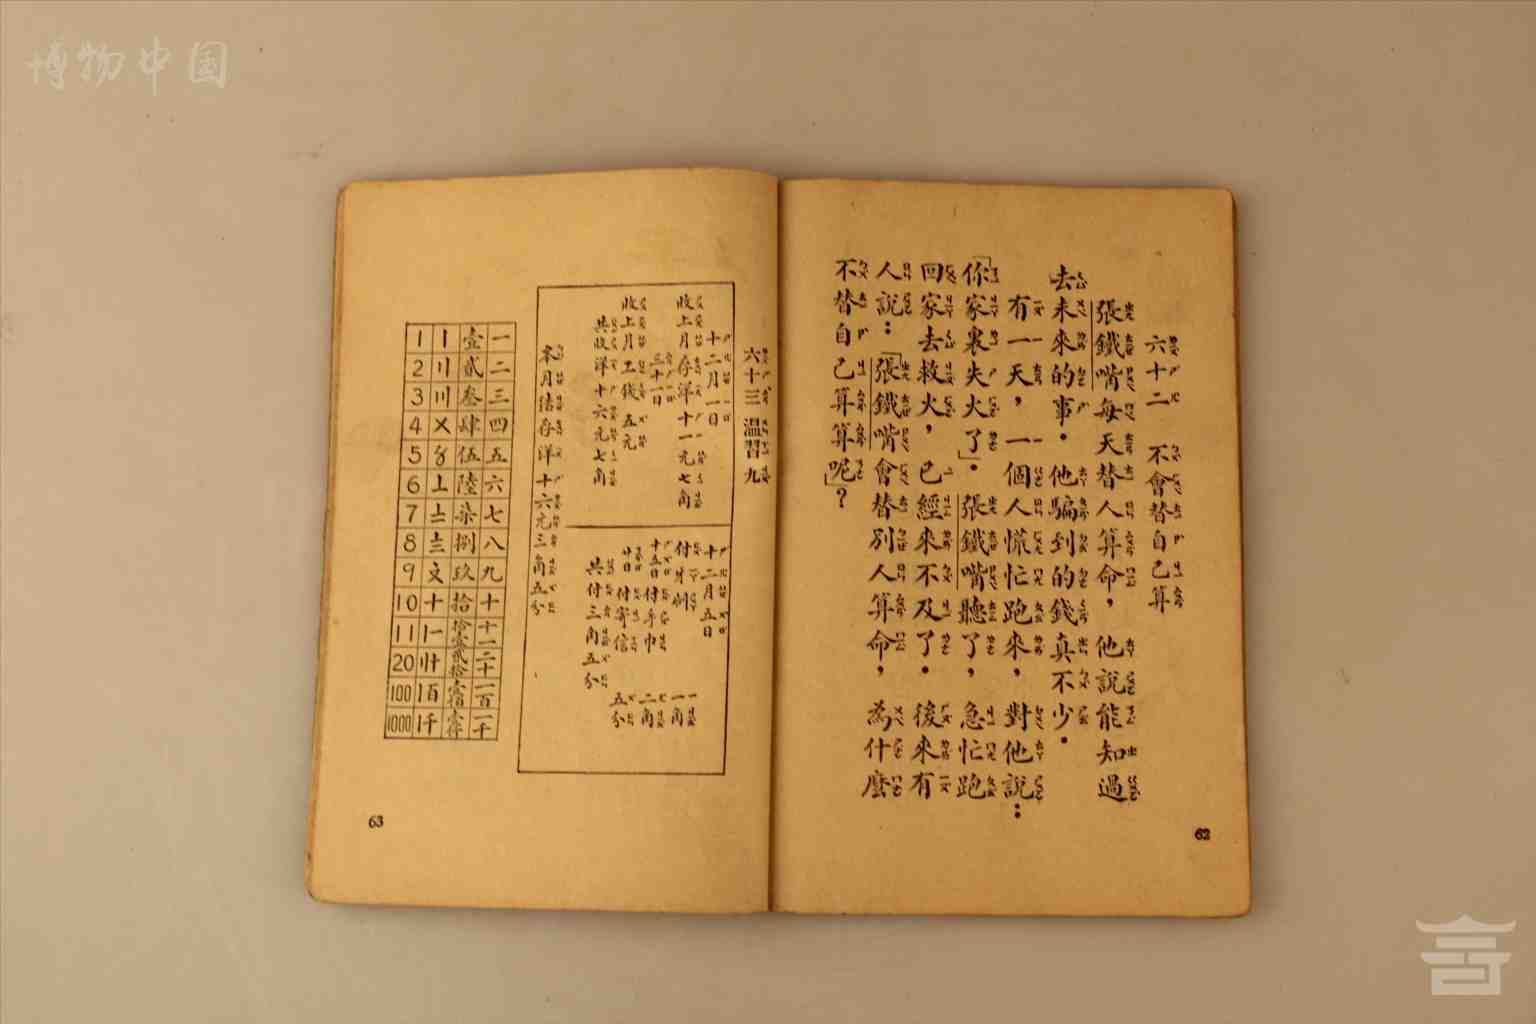 博物中国
六十二 不會替自己算
張鐵嘴每天替人算命，他說能知過
去未來的事．他騙到的錢真不少．
有一天，一個人慌忙跑來，對他說：
「你家裏失火了」．張鐵嘴聽了，急忙跑
回家去救火，已經來不及了．後來有
人說：「張鐵嘴會替別人算命，為什麼
不替自己算算呢」？
62
六十三 溫習九
十二月一日
收上月存洋十一元七角
三十一日
收上月工錢 五元
共收洋十六元七角
十二月五日
付牙刷 一角
十五日付手巾 二角
廿日付寄信 五分
共付三角五分
本月結存洋十六元三角五分
一 壹 〡 1
二 貳 〢 2
三 叁 〣 3
四 肆 〤 4
五 伍 〥 5
六 陸 〦 6
七 柒 〧 7
八 捌 〨 8
九 玖 〩 9
十 拾 十 10
十一 拾壹 〡一 11
二十 貳拾 〢十 20
一百 壹佰 〡百 100
一千 壹仟 〡千 1000
63